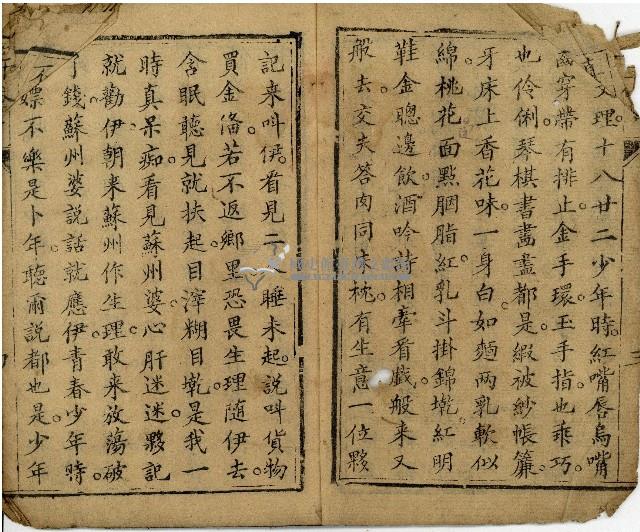 文理十八廿二少年時。紅嘴唇烏嘴
齒穿帶有排止金手環。玉手指也乖巧。
也伶俐。琴棋書畫盡都是緞被紗帳簾。
牙床上香花味一身白如麵兩乳軟似
綿桃花面點胭脂紅乳斗掛錦墘紅明
鞋金聰邊飲酒吟詩相牽看戲般来又
般去。交夫答肉同床枕。有生意一位夥
記来呌伊。看見二睡未起。說呌貨物
買金俻。若不返鄉里恐畏生理隨伊去
含眠聽見就扶起目滓糊目墘。是我一
時真呆痴看見蘇州婆。心肝迷迷夥記
就勸伊朝来蘇州作生理。敢来放蕩破
了錢。蘇州婆說話就應伊。青春少年時。
不嫖不樂是卜年。聽爾說都也是。少年